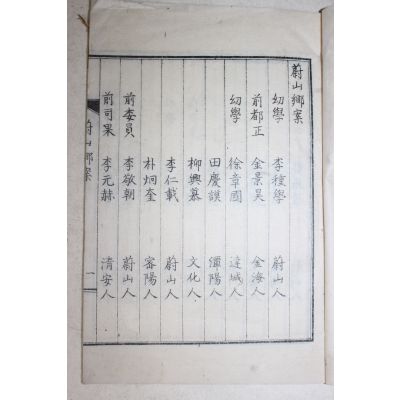 蔚山鄉案
幼學 李種學 蔚山人
前都正 金景昊 金海人
幼學 徐章國 達城人
田慶 潭陽人
柳興慕 文化人
李仁載 蔚山人
朴炯奎 密陽人
前委員 李敬朝 蔚山人
前司果 李元赫 清安人
蔚山鄉案 一